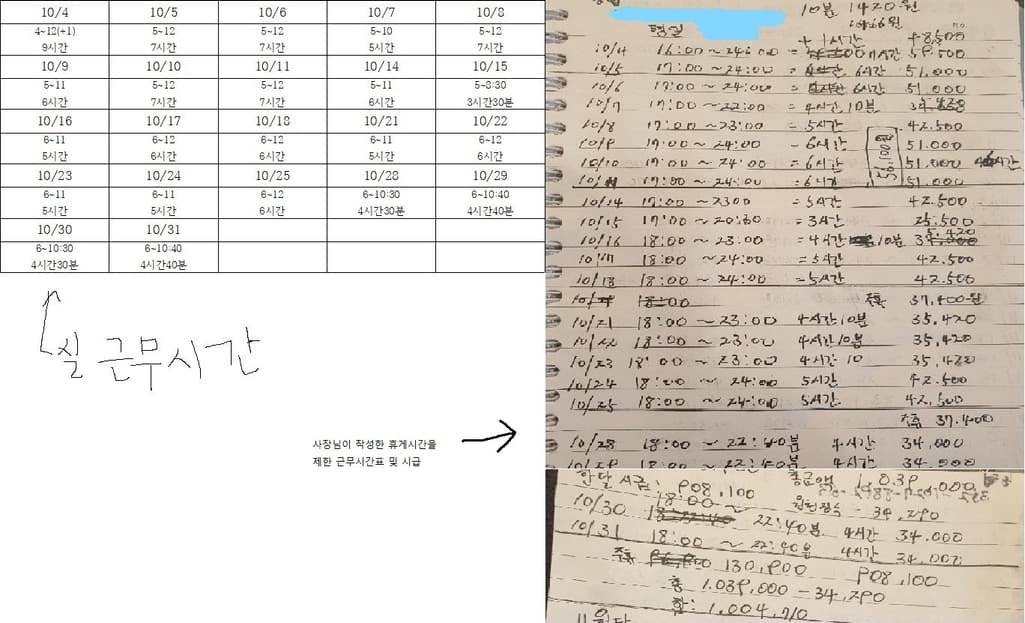 10/4 10/5 10/6 10/7 10/8
4~12(+1) 5~12 5~12 5~10 5~12
9시간 7시간 7시간 5시간 7시간
10/9 10/10 10/11 10/14 10/15
5~11 5~12 5~12 5~11 5~8:30
6시간 7시간 7시간 6시간 3시간30분
10/16 10/17 10/18 10/21 10/22
6~11 6~12 6~12 6~11 6~12
5시간 6시간 6시간 5시간 6시간
10/23 10/24 10/25 10/28 10/29
6~11 6~11 6~12 6~10:30 6~10:40
5시간 5시간 6시간 4시간30분 4시간40분
10/30 10/31
6~10:30 6~10:40
4시간30분 4시간40분
실 근무시간
사장님이 작성한 휴게시간을
제한 근무시간표 및 시급
10분 1420원
평일
+ 1시간 +8,500
10/4 16:00~24:00 = 7시간 59.500
10/5 17:00~24:00 = 6시간 51.000
10/6 17:00~24:00 = 6시간 51.000
10/7 17:00~22:00 = 4시간 10분
10/8 17:00~23:00 = 5시간 42.500
10/9 17:00~24:00 - 6시간 51.000
10/10 17:00~24:00 = 6시간 51,000
10/11 17:00~24:00 = 6시간 51.000
10/14 17:00~2300 = 5시간 42.500
10/15 17:00~20:30 = 3시간 25.500
10/16 18:00~23:00 = 4시간 10분
10/17 18:00~24:00 = 5시간 42.500
10/18 18:00~24:00 = 5시간 42.500
주휴 37,400원
10/21 18:00~23:00 4시간10분 35,420
10/22 18:00~23:00 4시간10분 35,420
10/23 18:00~23:00 4시간 10 35,420
10/24 18:00~24:00 5시간 42.500
10/25 18:00~24:00 5시간 42,500
주휴 37.400
10/28 18:00~22:40분 4시간 34,000
10/29 18:00~22:40분 4시간 34.000
한달 시급: 908,100 총금액 1.039,000
원천징수 - 34,290
10/30 18:00~ 22:40분 4시간 34.000
10/31 18:00~22:40분 4시간 34,000
주휴 130,900 908,100
총 1.039,000-34,290
합: 1,004,710
11월달